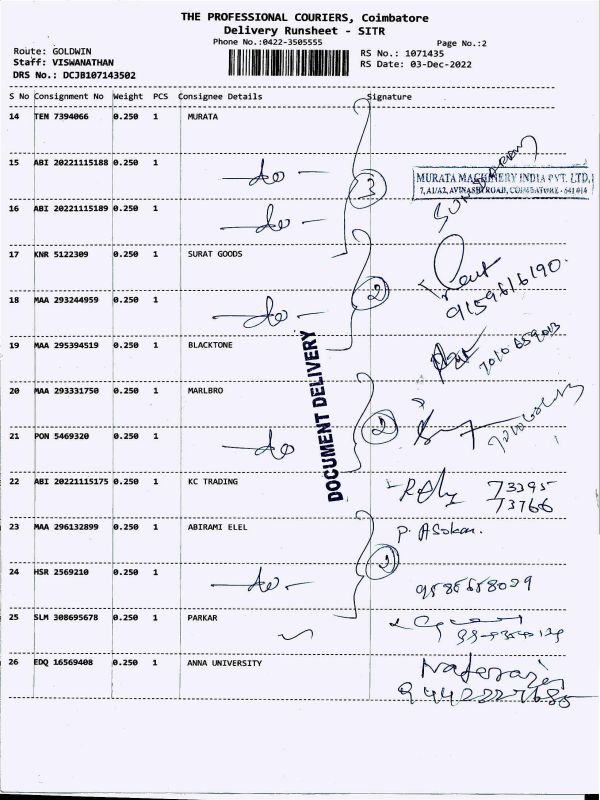 THE PROFESSIONAL COURIERS, Coimbatore
Delivery Runsheet - SITR
Phone No.:0422-3505555
Page No.:2
Route: GOLDWIN
Staff: VISWANATHAN
DRS No.: DCJB107143502
RS No.: 1071435
RS Date: 03-Dec-2022
S No Consignment No Weight PCS Consignee Details Signature
14 TEN 7394066 0.250 1 MURATA
15 ABI 20221115188 0.250 1 -do-
3
MURATA MACHINERY INDIA PVT. LTD,
7, A1/A2, AVINASHI ROAD, COIMBATORE - 641 014
16 ABI 20221115189 0.250 1 -do-
17 KNR 5122309 0.250 1 SURAT GOODS
9159616190.
18 MAA 293244959 0.250 1 -do-
2
19 MAA 295394519 0.250 1 BLACKTONE
DOCUMENT DELIVERY
20 MAA 293331750 0.250 1 MARLBRO
2
21 PON 5469320 0.250 1 -do-
22 ABI 20221115175 0.250 1 KC TRADING
73395
73766
23 MAA 296132899 0.250 1 ABIRAMI ELEL
P. Asokan.
2
24 HSR 2569210 0.250 1 -do-
25 SLM 308695678 0.250 1 PARKAR
26 EDQ 16569408 0.250 1 ANNA UNIVERSITY